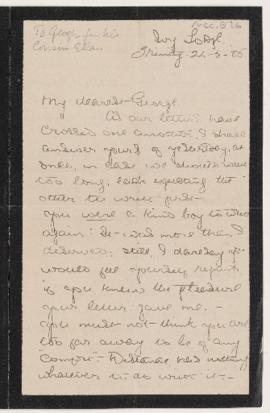 Acc. 876
To Geogh from his
Cousin Ellen
Ivy Lodge
Friday - 21-3-05
My dearest George
As our letters have
crossed one another, I shall
answer yours of yesterday at
once, in case we should wait
too long; each expecting the
other to write first -
you were a kind boy to write
again: It was more than I
deserved; still, I daresay you
would feel yourself repaid
if you knew the pleasure
your letter gave me. -
you must not think you are
too far away to be of "any
Comfort" - Distance has nothing
whatever to do with it -